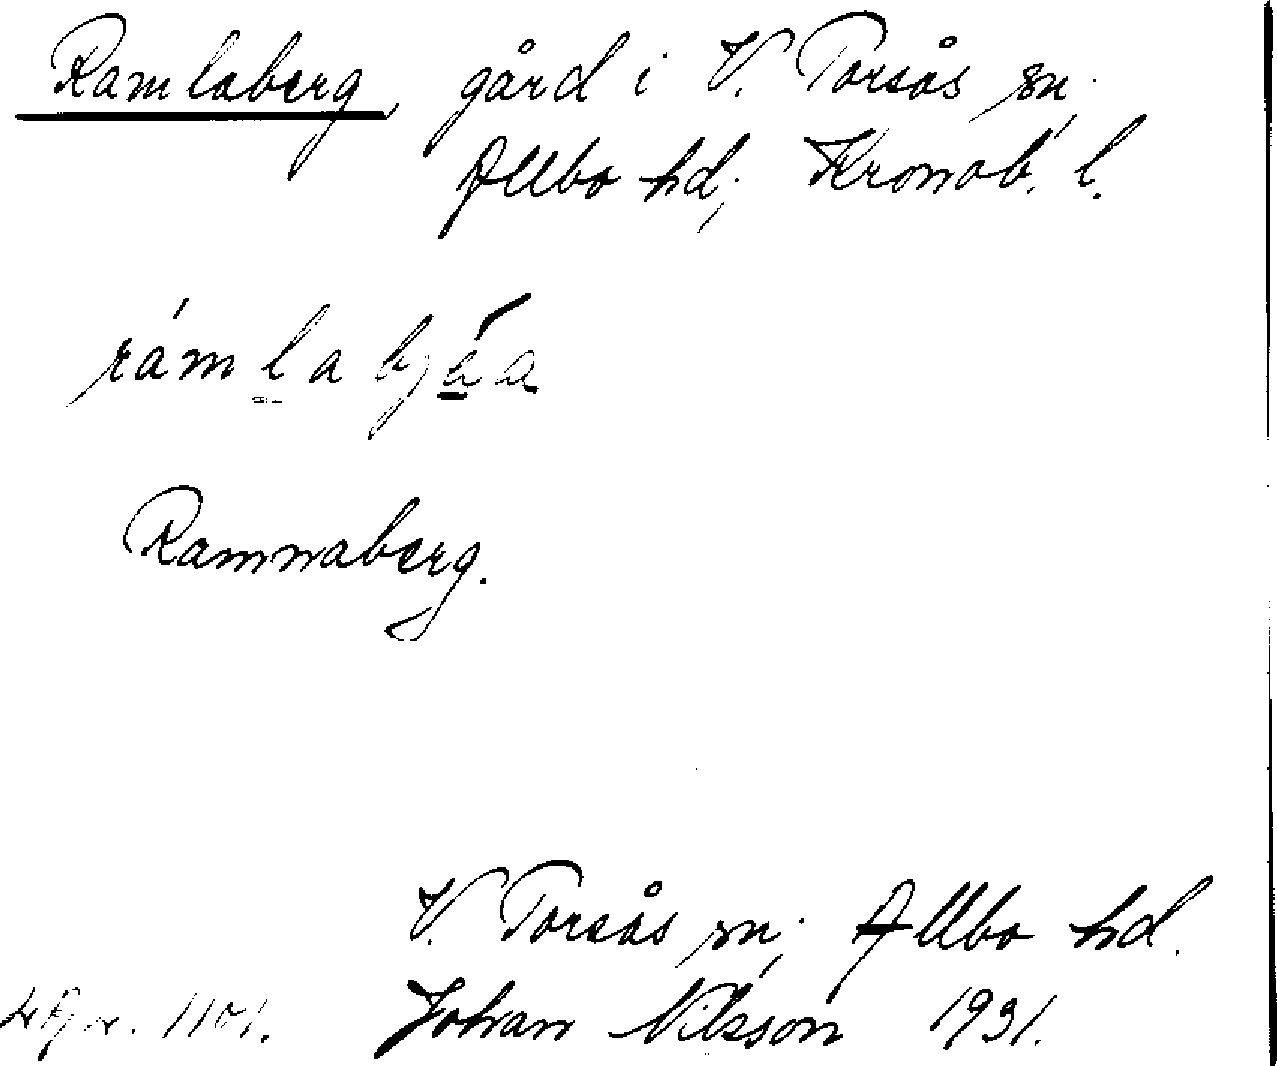 Ramlaberg, gård i V. Torsås sn;
Allbo hd; Kronob. l.
Ramnaberg.
V. Torsås sn; Allbo hd.
1101. Johan Nilsson 1931.